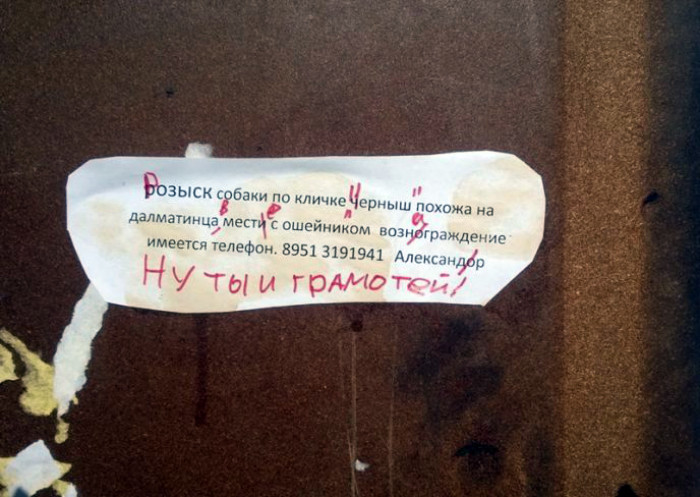 розыск собаки по кличке черныш похожа на
далматинца мести с ошейником вознограждение
имеется телефон. 8951 3191941 Александор
Ну ты и грамотей!